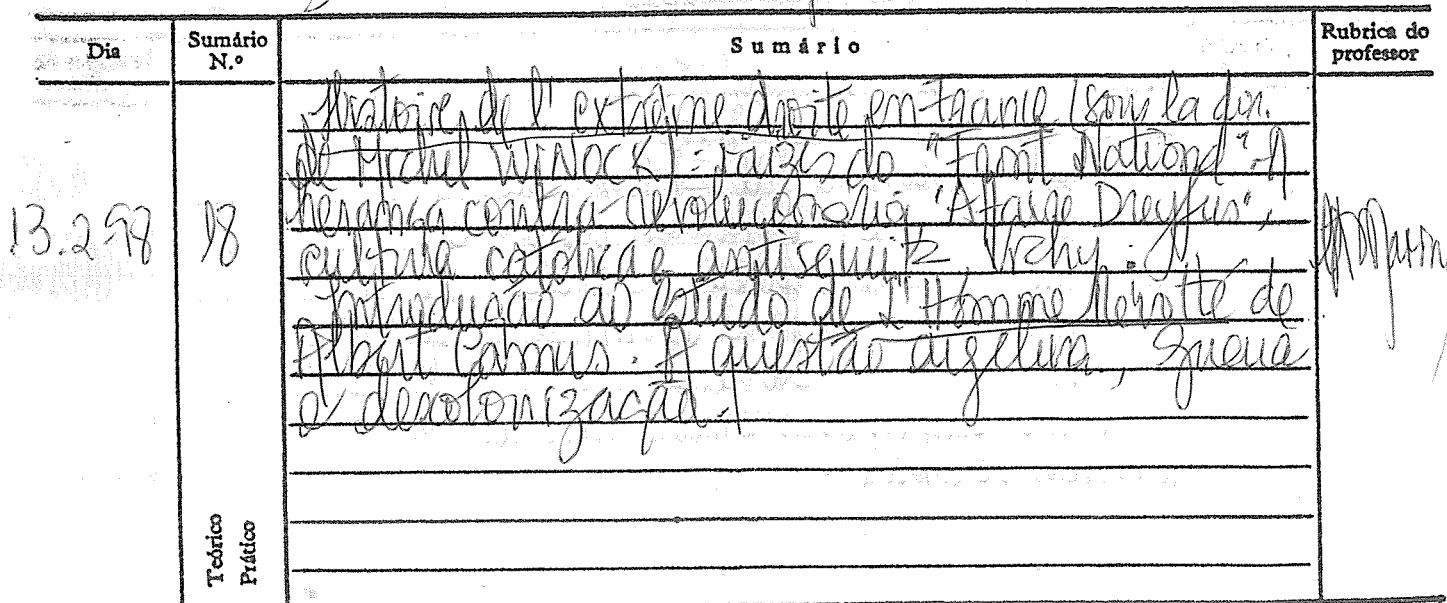 Dia
Sumário N.º
Sumário
Rubrica do professor
13.2-98
18
Histoire de l'extrême droite en France (sous la dir.
de Michel WINOCK): raízes do "Front National". A
herança contra-revolucionária, "Affaire Dreyfus",
cultura católica e antisemita Vichy.
Introdução ao estudo de L'Homme Révolté de
Albert Camus. A questão argelina, guerra
e descolonização.
Teórico
Prático